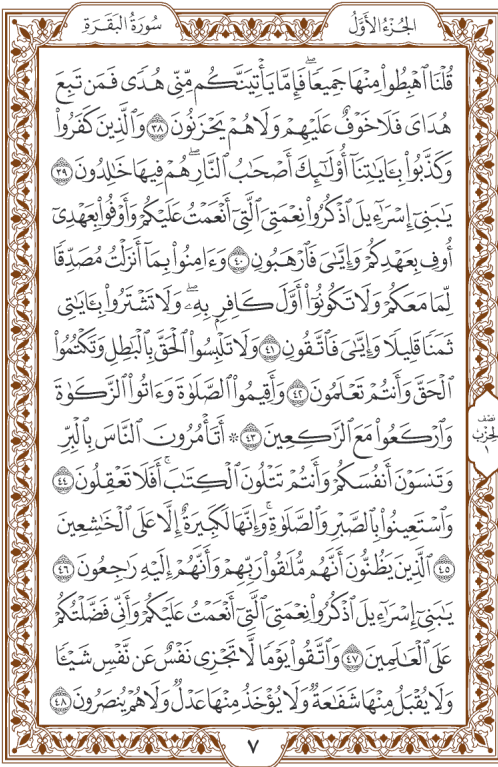 الجُزْءُ الأَوَّلُ
سُورَةُ البَقَرَةِ
قُلْنَا ٱهْبِطُوا۟ مِنْهَا جَمِيعًۭا ۖ فَإِمَّا يَأْتِيَنَّكُم مِّنِّى هُدًۭى فَمَن تَبِعَ
هُدَاىَ فَلَا خَوْفٌ عَلَيْهِمْ وَلَا هُمْ يَحْزَنُونَ ٣٨ وَٱلَّذِينَ كَفَرُوا۟
وَكَذَّبُوا۟ بِـَٔايَـٰتِنَآ أُو۟لَـٰٓئِكَ أَصْحَـٰبُ ٱلنَّارِ ۖ هُمْ فِيهَا خَـٰلِدُونَ ٣٩
يَـٰبَنِىٓ إِسْرَٰٓءِيلَ ٱذْكُرُوا۟ نِعْمَتِىَ ٱلَّتِىٓ أَنْعَمْتُ عَلَيْكُمْ وَأَوْفُوا۟ بِعَهْدِىٓ
أُوفِ بِعَهْدِكُمْ وَإِيَّـٰىَ فَٱرْهَبُونِ ٤٠ وَءَامِنُوا۟ بِمَآ أَنزَلْتُ مُصَدِّقًۭا
لِّمَا مَعَكُمْ وَلَا تَكُونُوٓا۟ أَوَّلَ كَافِرٍۭ بِهِۦ ۖ وَلَا تَشْتَرُوا۟ بِـَٔايَـٰتِى
ثَمَنًۭا قَلِيلًۭا وَإِيَّـٰىَ فَٱتَّقُونِ ٤١ وَلَا تَلْبِسُوا۟ ٱلْحَقَّ بِٱلْبَـٰطِلِ وَتَكْتُمُوا۟
ٱلْحَقَّ وَأَنتُمْ تَعْلَمُونَ ٤٢ وَأَقِيمُوا۟ ٱلصَّلَوٰةَ وَءَاتُوا۟ ٱلزَّكَوٰةَ
وَٱرْكَعُوا۟ مَعَ ٱلرَّٰكِعِينَ ٤٣ ۞ أَتَأْمُرُونَ ٱلنَّاسَ بِٱلْبِرِّ
نِصْف
الحِزْب
١
وَتَنسَوْنَ أَنفُسَكُمْ وَأَنتُمْ تَتْلُونَ ٱلْكِتَـٰبَ ۚ أَفَلَا تَعْقِلُونَ ٤٤
وَٱسْتَعِينُوا۟ بِٱلصَّبْرِ وَٱلصَّلَوٰةِ ۚ وَإِنَّهَا لَكَبِيرَةٌ إِلَّا عَلَى ٱلْخَـٰشِعِينَ
٤٥ ٱلَّذِينَ يَظُنُّونَ أَنَّهُم مُّلَـٰقُوا۟ رَبِّهِمْ وَأَنَّهُمْ إِلَيْهِ رَٰجِعُونَ ٤٦
يَـٰبَنِىٓ إِسْرَٰٓءِيلَ ٱذْكُرُوا۟ نِعْمَتِىَ ٱلَّتِىٓ أَنْعَمْتُ عَلَيْكُمْ وَأَنِّى فَضَّلْتُكُمْ
عَلَى ٱلْعَـٰلَمِينَ ٤٧ وَٱتَّقُوا۟ يَوْمًۭا لَّا تَجْزِى نَفْسٌ عَن نَّفْسٍۢ شَيْـًۭٔا
وَلَا يُقْبَلُ مِنْهَا شَفَـٰعَةٌۭ وَلَا يُؤْخَذُ مِنْهَا عَدْلٌۭ وَلَا هُمْ يُنصَرُونَ ٤٨
٧